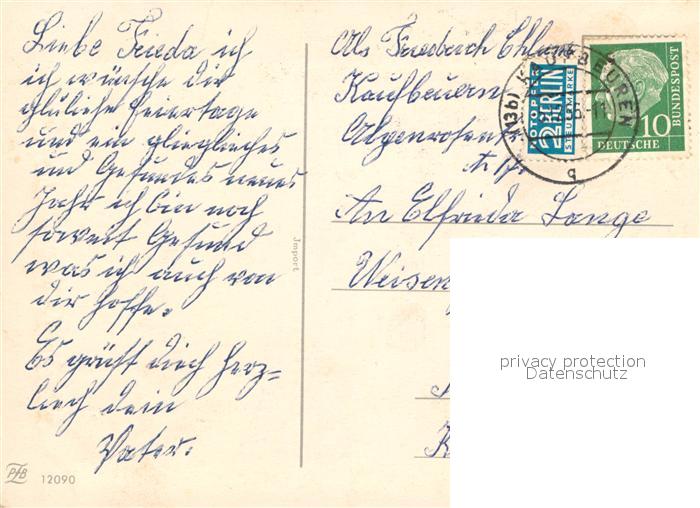 Liebe Frieda ich
ich wünsche dir
glüliche Feiertage
und ein gliegliches
und Gesundes neues
Jahr ich bin noch
soweit Gesund
was ich auch von
dir hoffe.
Es grüßt diech herz=
liech dein
Vater.
PfB
12090
Import
Abs Friedrich
Kaufbeuern
An Elfrieda Lange
KAUFBEUREN
NOTOPFER
2 BERLIN
STEUERMARKE
10
DEUTSCHE
BUNDESPOST
privacy protection
Datenschutz